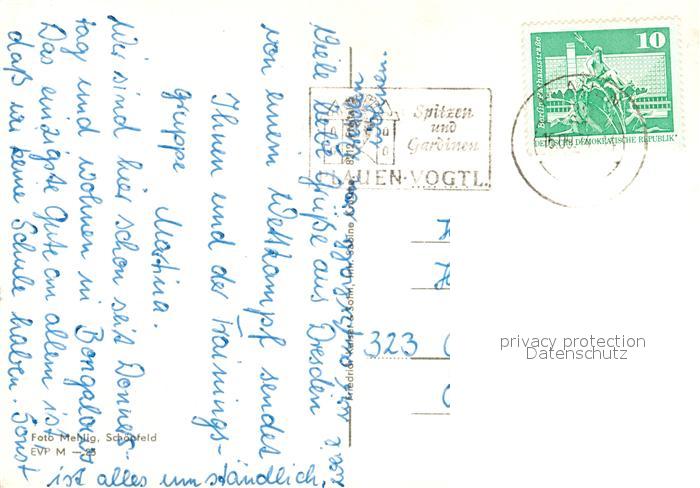 Viele liebe Grüße aus Dresden
von einem Wettkampf sendet
Ihnen und der Trainings-
gruppe
Martina.
Wir sind hier schon seit Donners-
tag und wohnen in Bongalows
Das einzigste Gute am allem ist
daß wir keine Schule haben. Sonst
ist alles umständlich,
wohnen.
Spitzen
und
Gardinen
PLAUEN-VOGTL.
10
Berlin Rathausstraße
DEUTSCHE DEMOKRATISCHE REPUBLIK
323
privacy protection
Datenschutz
Foto Mehlig, Schönfeld
EVP M — 25